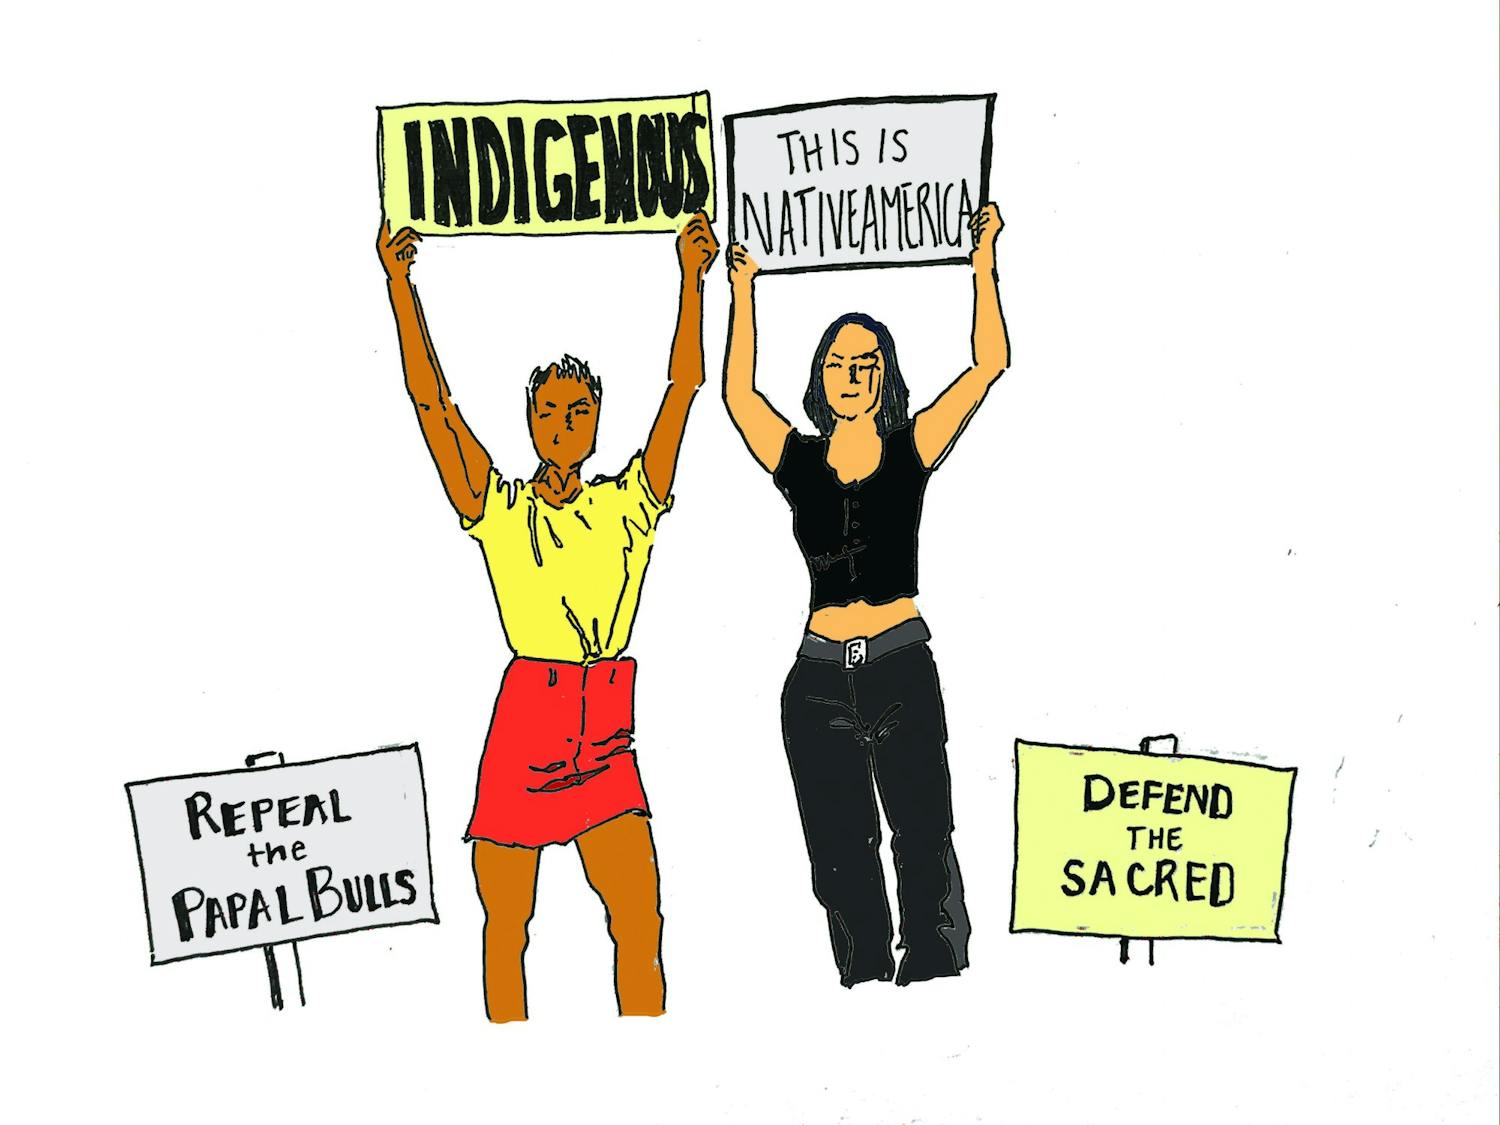 INDIGENOUS
THIS IS
NATIVEAMERICA
REPEAL
the
PAPAL BULLS
DEFEND
THE
SACRED